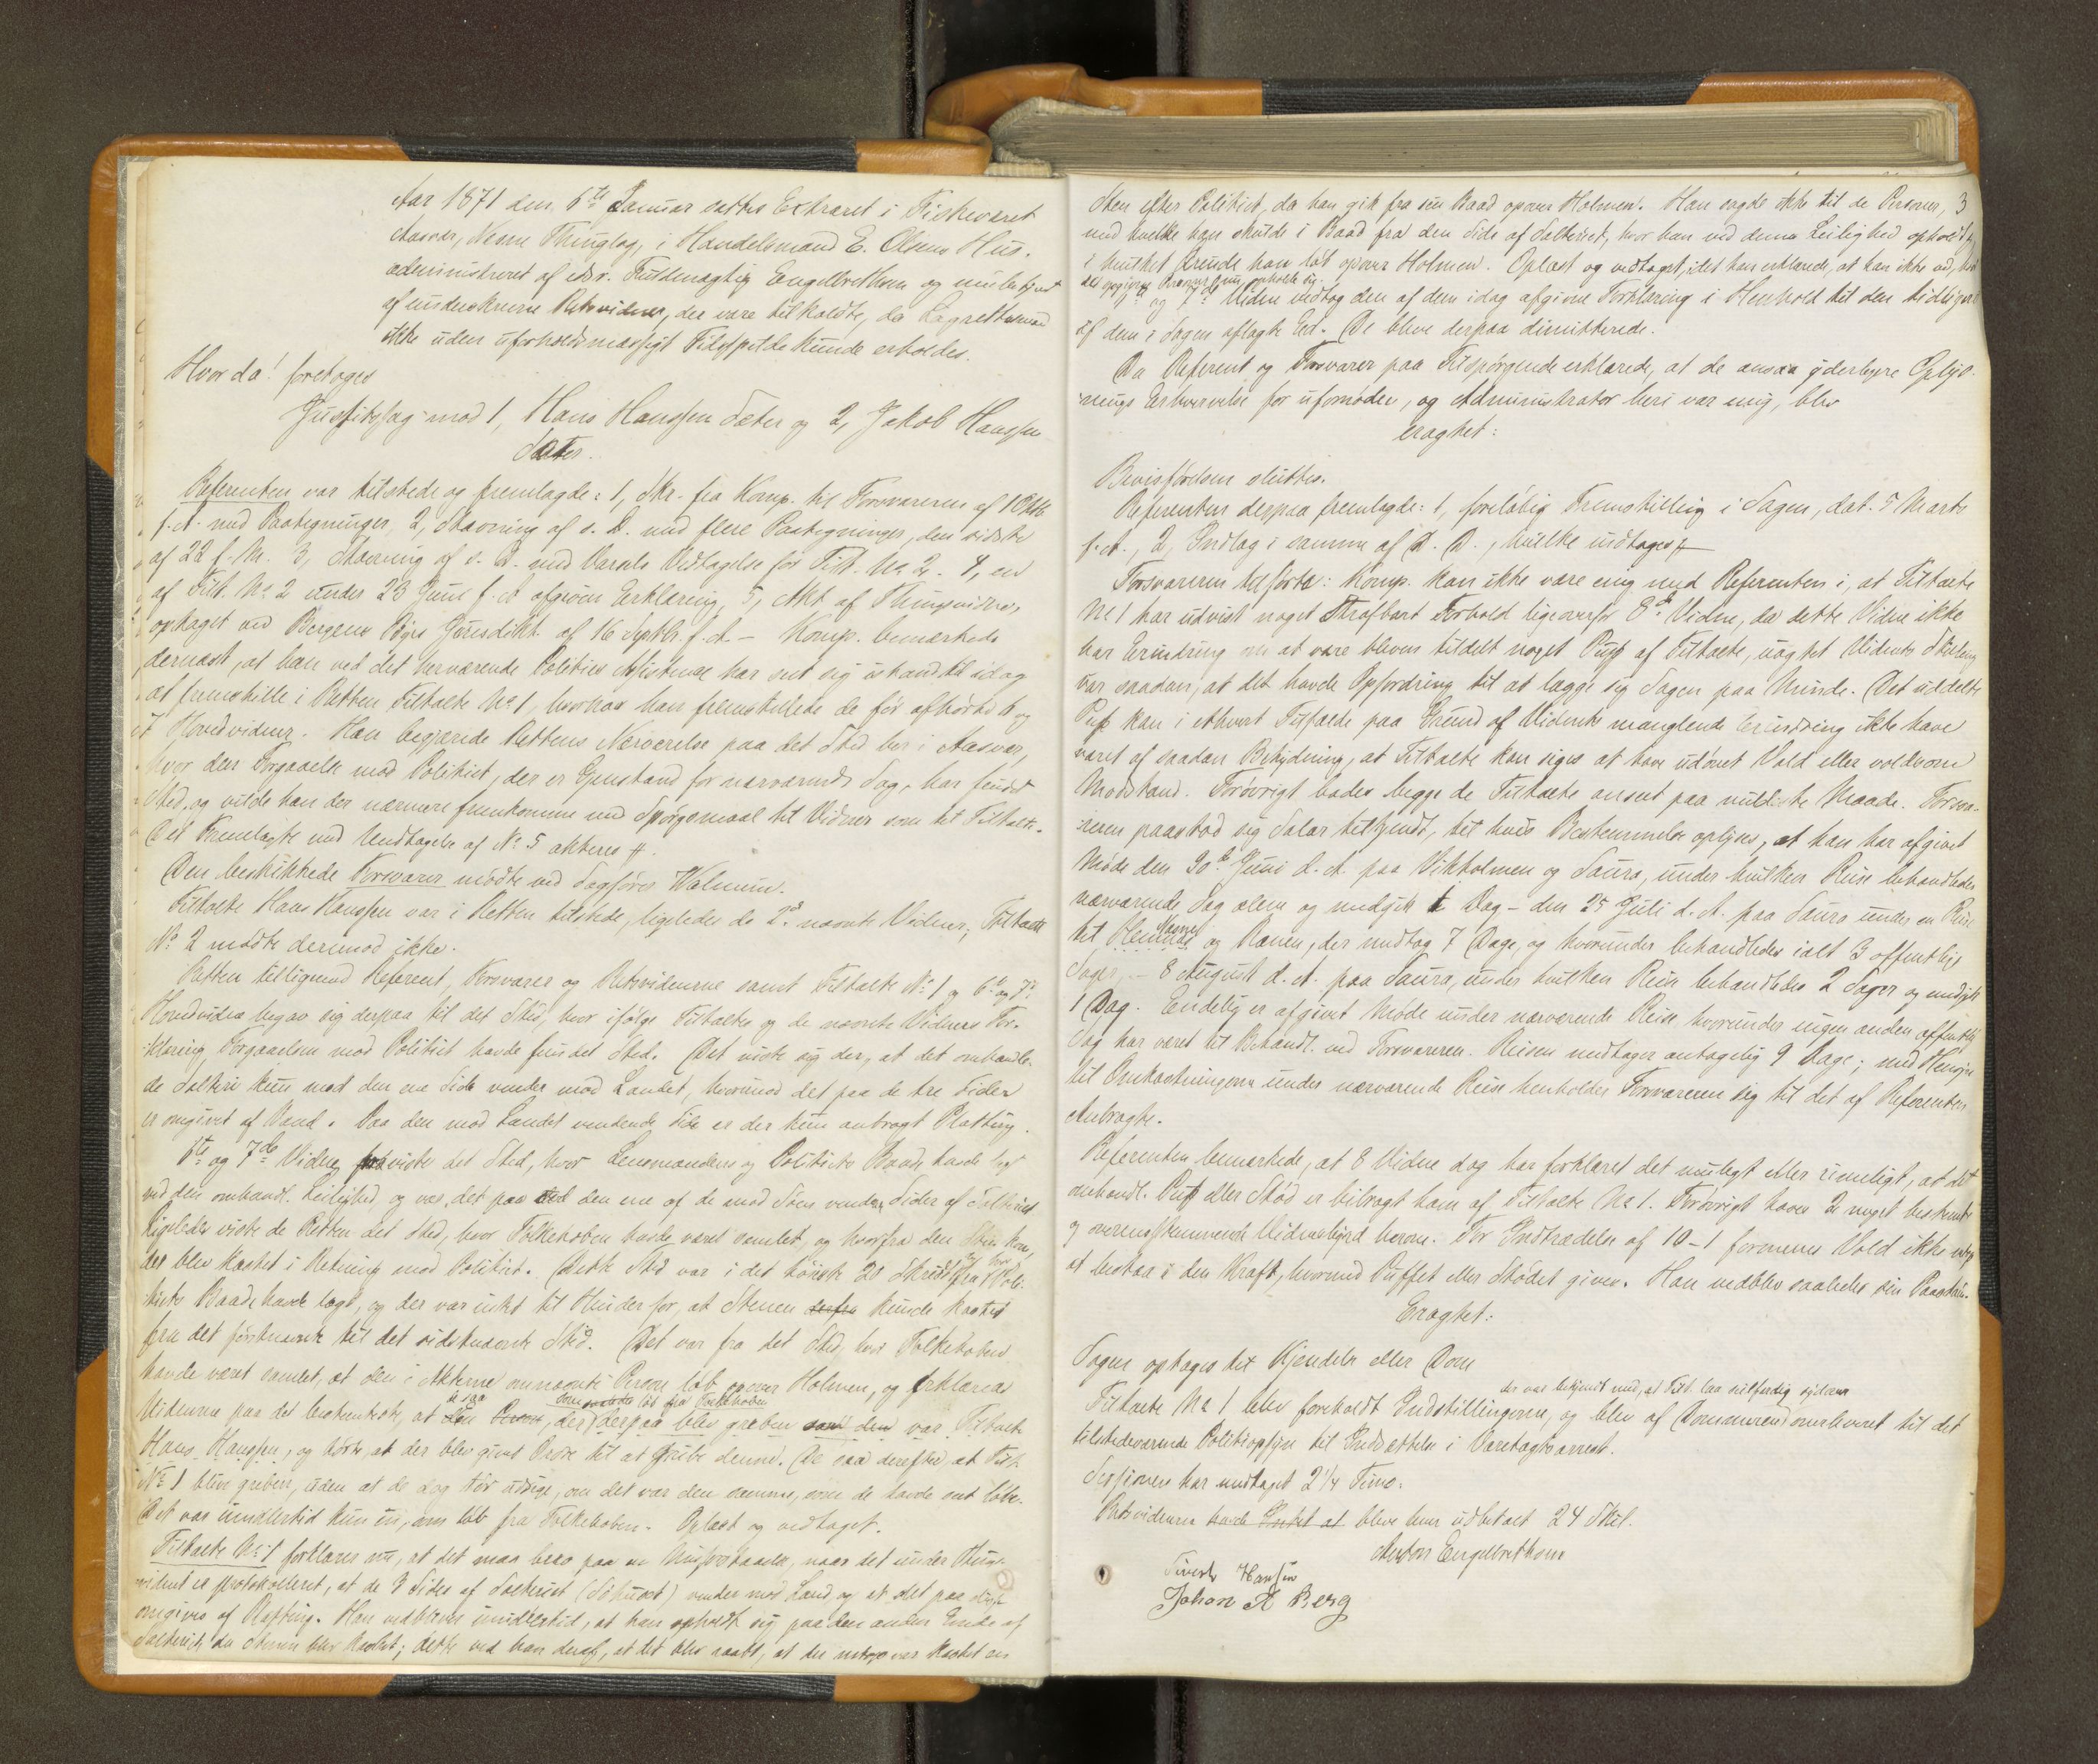 Aar 1871 den 6te Januar sattes Extraret i Fiskeværet
Aasvær, Nesne Thinglag, i Handelsmand E. Olsens Hus,
administreret af edsv. Fuldmægtig Engelbrethsen og
af underskrevne Retsvidner, der vare tilkaldte, da Lagrettesmænd
ikke uden uforholdsmæssigt Tidsspilde kunde erholdes.
Hvor da! foretoges
Justitssag mod 1, Hans Hanssen Sæter og 2, Jakob Hanssen
Sæter.
Referenten var tilstede og fremlagde: 1, Skr. fra Komp. til Forsvareren af 1 Oktb.
f. A. med Paategninger, 2, Stævning af s. D. med flere Paategninger, den sidste
af 22 f. M. 3, Stævning af s. D. med Varsels Vedtagelse for Tilt. No 2. 4, en
af Tilt. No 2 under 23 Juni f. A. afgiven Erklæring, 5, Akt af Thingsvidne,
optaget ved Bergens Byes Jurisdikt. af 16 Septbr. f. A. - Komp. bemærkede
dernæst, at han ved det herværende Polities Assistence har seet sig istand til idag
at fremstille i Retten Tiltalte No 1, hvorhos han fremstillede de før afhørte 6 og
7 Hovedvidner. Han begjærede Rettens Nærværelse paa det Sted her i Aasvær,
hvor den Forgaaelse mod Politiet, der er Gjenstand for nærværende Sag, har fundet
Sted, og vilde han der nærmere fremkomme med Spørgsmaal til Vidner som til Tiltalte.
Det Fremlagte med Undtagelse af No 5 akteres #.
Den beskikkede Forsvarer mødte ved Sagfører Walnum.
Tiltalte Hans Hanssen var i Retten tilstede, ligeledes de 2de nævnte Vidner; Tiltalte
No 2 mødte derimod ikke.
Retten tilligemed Referent, Forsvarer og Retsvidnerne samt Tiltalte No 1 og 6te og 7de
Hovedvidne begav sig derpaa til det Sted, hvor ifølge Tiltaltes og de nævnte Vidners For-
klaring Forgaaelsen mod Politiet havde fundet Sted. Det viste sig der, at det omhandle-
de Salteri kun med den ene Side vender mod Landet, hvorimod det paa de tre Sider
er omgivet af Vand. Paa den mod Landet vendende Side er der kun anbragt Platting.
6te og 7de Vidne paaviste det Sted, hvor Lensmandens og Politiets Baade havde lagt
ved den omhandl. Leilighed, og var det paa den ene af de mod Søen vendende Sider af Salteriet.
Ligeledes viste de Retten det Sted, hvor Folkehoben havde været samlet, og hvorfra den Sten kom,
der blev kastet i Retning mod Politiet. Dette Sted var i det høieste 20 Skridt fra, hvor Poli-
tiets Baade havde lagt, og der var intet til Hinder for, at Stenen derfra kunde kastes
fra det førstnævnte til det sidstnævnte Sted. Det var fra det Sted, hvor Folkehoben
havde været samlet, at den i Akterne omnævnte Person løb opover Holmen, og erklærede
Vidnerne paa det bestemteste, at den Person, som løb fra Folkehoben
der derpaa blev greben som den var Tiltalte
Hans Hanssen, og hørte, at der blev givet Ordre til at gribe denne. De saa derefter, at Tilt.
No 1 blev greben, uden at de dog tør udsige, om det var den samme, som de havde seet løbe.
Det var imidlertid kun en, som løb fra Folkehoben. Oplæst og vedtaget.
Tiltalte No 1 forklarer nu, at det maa bero paa en Misforstaaelse, naar det under Thing-
vidnet er protokolleret, at de 3 Sider af Salteriet (Søhuset) vender mod Land og at det paa
omgives af Rafting. Han vedblever imidlertid, at han opholdt sig paa den anden Ende af
Salteriet, da Stenen blev kastet; dette ved han deraf, at det blev raabt, at der netop var kastet en
3
Sten efter Politiet, da han gik fra sin Baad opover Holmen. Han sagde ikke til de Personer,
med hvilke han skulde i Baad fra den Side af Salteriet, hvor han ved denne Leilighed opholdt sig,
i hvilket Ærende han løb opover Holmen. Oplæst og vedtaget, idet han erklærede, at han ikke ved, hvor
6te og 7de Vidne vedtog den af dem idag afgivne Forklaring i Henhold til den tidligere
af dem i Sagen aflagte Ed. De bleve derpaa dimitterede.
Da Referent og Forsvarer paa Tilspørgende erklærede, at de ansaa yderligere Oplys-
nings Erhvervelse for ufornøden, og Administrator heri var enig, blev
eragtet:
Bevisførelsen sluttes.
Referenten derpaa fremlagde: 1, foreløbig Fremstilling i Sagen, dat. 5 Marts
f. A., 2, Indlæg i samme af D. D., hvilke indtages #
Forsvareren tilførte: Komp. kan ikke være enig med Referenten i, at Tiltalte
No 1 har udvist noget strafbart Forhold ligeoverfor 8de Vidne, da dette Vidne ikke
har Erindring om at være bleven tildelt noget Puf af Tiltalte, uagtet Vidnets Stilling
var saadan, at det havde Opfordring til at lægge sig Sagen paa Minde. Det uddelte
Puf kan i ethvert Tilfælde paa Grund af Vidnets manglende Erindring ikke have
været af saadan Betydning, at Tiltalte kan siges at have udøvet Vold eller voldsom
Modstand. Forøvrigt bades begge de Tiltalte anseet paa mildeste Maade. Forsva-
reren paastod sig Salær tilkjendt, til hvis Bestemmelse oplyses, at han har afgivet
Møde den 30te Juni d. A. paa Vikholmen og Saura, under hvilken Reise behandledes
nærværende Sag alene og medgik 1 Dag - den 25 Juli d. A. paa Saura under en Reise
til Hemnæs og Ranen, der medtog 7 Dage, og hvorunder behandledes ialt 3 offentlige
Sager, - 8 August d. A. paa Saura, under hvilken Reise behandledes 2 Sager og medgik
1 Dag. Endelig er afgivet Møde under nærværende Reise, hvorunder ingen anden offentlig
Sag har været til Behandl. ved Forsvareren. Reisen medtager antagelig 9 Dage; med Hensyn
til Omkostningerne under nærværende Reise henholder Forsvareren sig til det af Referenten
Anbragte.
Referenten bemærkede, at 8 Vidne dog har forklaret det muligt eller rimeligt, at det
omhandl. Puf eller Stød er bibragt ham af Tiltalte No 1. Forøvrigt haves 2 meget bestemte
og overensstemmende Vidnesbyrd herom. For Indtrædelse af 10-1 formenes Vold ikke
at bestaa i den Kraft, hvormed Puffet eller Stødet gives. Han vedblev saaledes sin Paastand.
Eragtet:
Sagen optages til Kjendelse eller Dom
der var bekjendt med, at Tilt. laa seilfærdig sydover
Tiltalte No 1 blev foreholdt Indstillingerne, og blev af Dommeren overleveret til det
tilstedeværende Politiopsyn til Indsættelse i Varetægtsarrest.
Sessionen har medtaget 2 1/4 Time.
Retsvidnerne havde Intet at bleve hver udbetalt 24 Skil.
Anton Engelbrethsen
Sivert Hansen
Johan A Berg